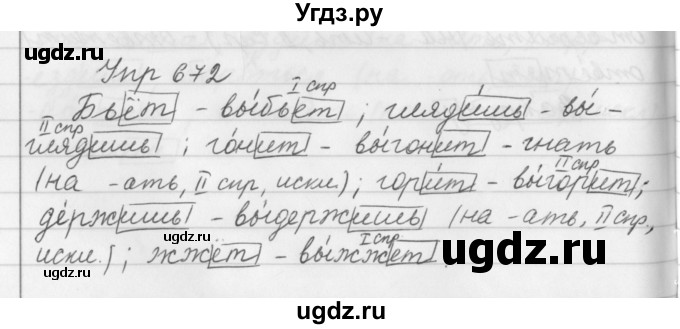 Угдз.ру
Упр 672
I спр
Бьёт - вы́бьет ; гляди́шь - вы́ -
II спр
глядишь ; го́нит - вы́гонит - гнать
(на -ать, II спр, искл.) ; гори́т - вы́горит ;
II спр
де́ржишь - вы́держишь (на -ать, II спр,
искл.) ; жжёт - вы́жжет
I спр
ugdz.ru
ugdz.ru
ugdz.ru
ugdz.ru
ugdz.ru
ugdz.ru